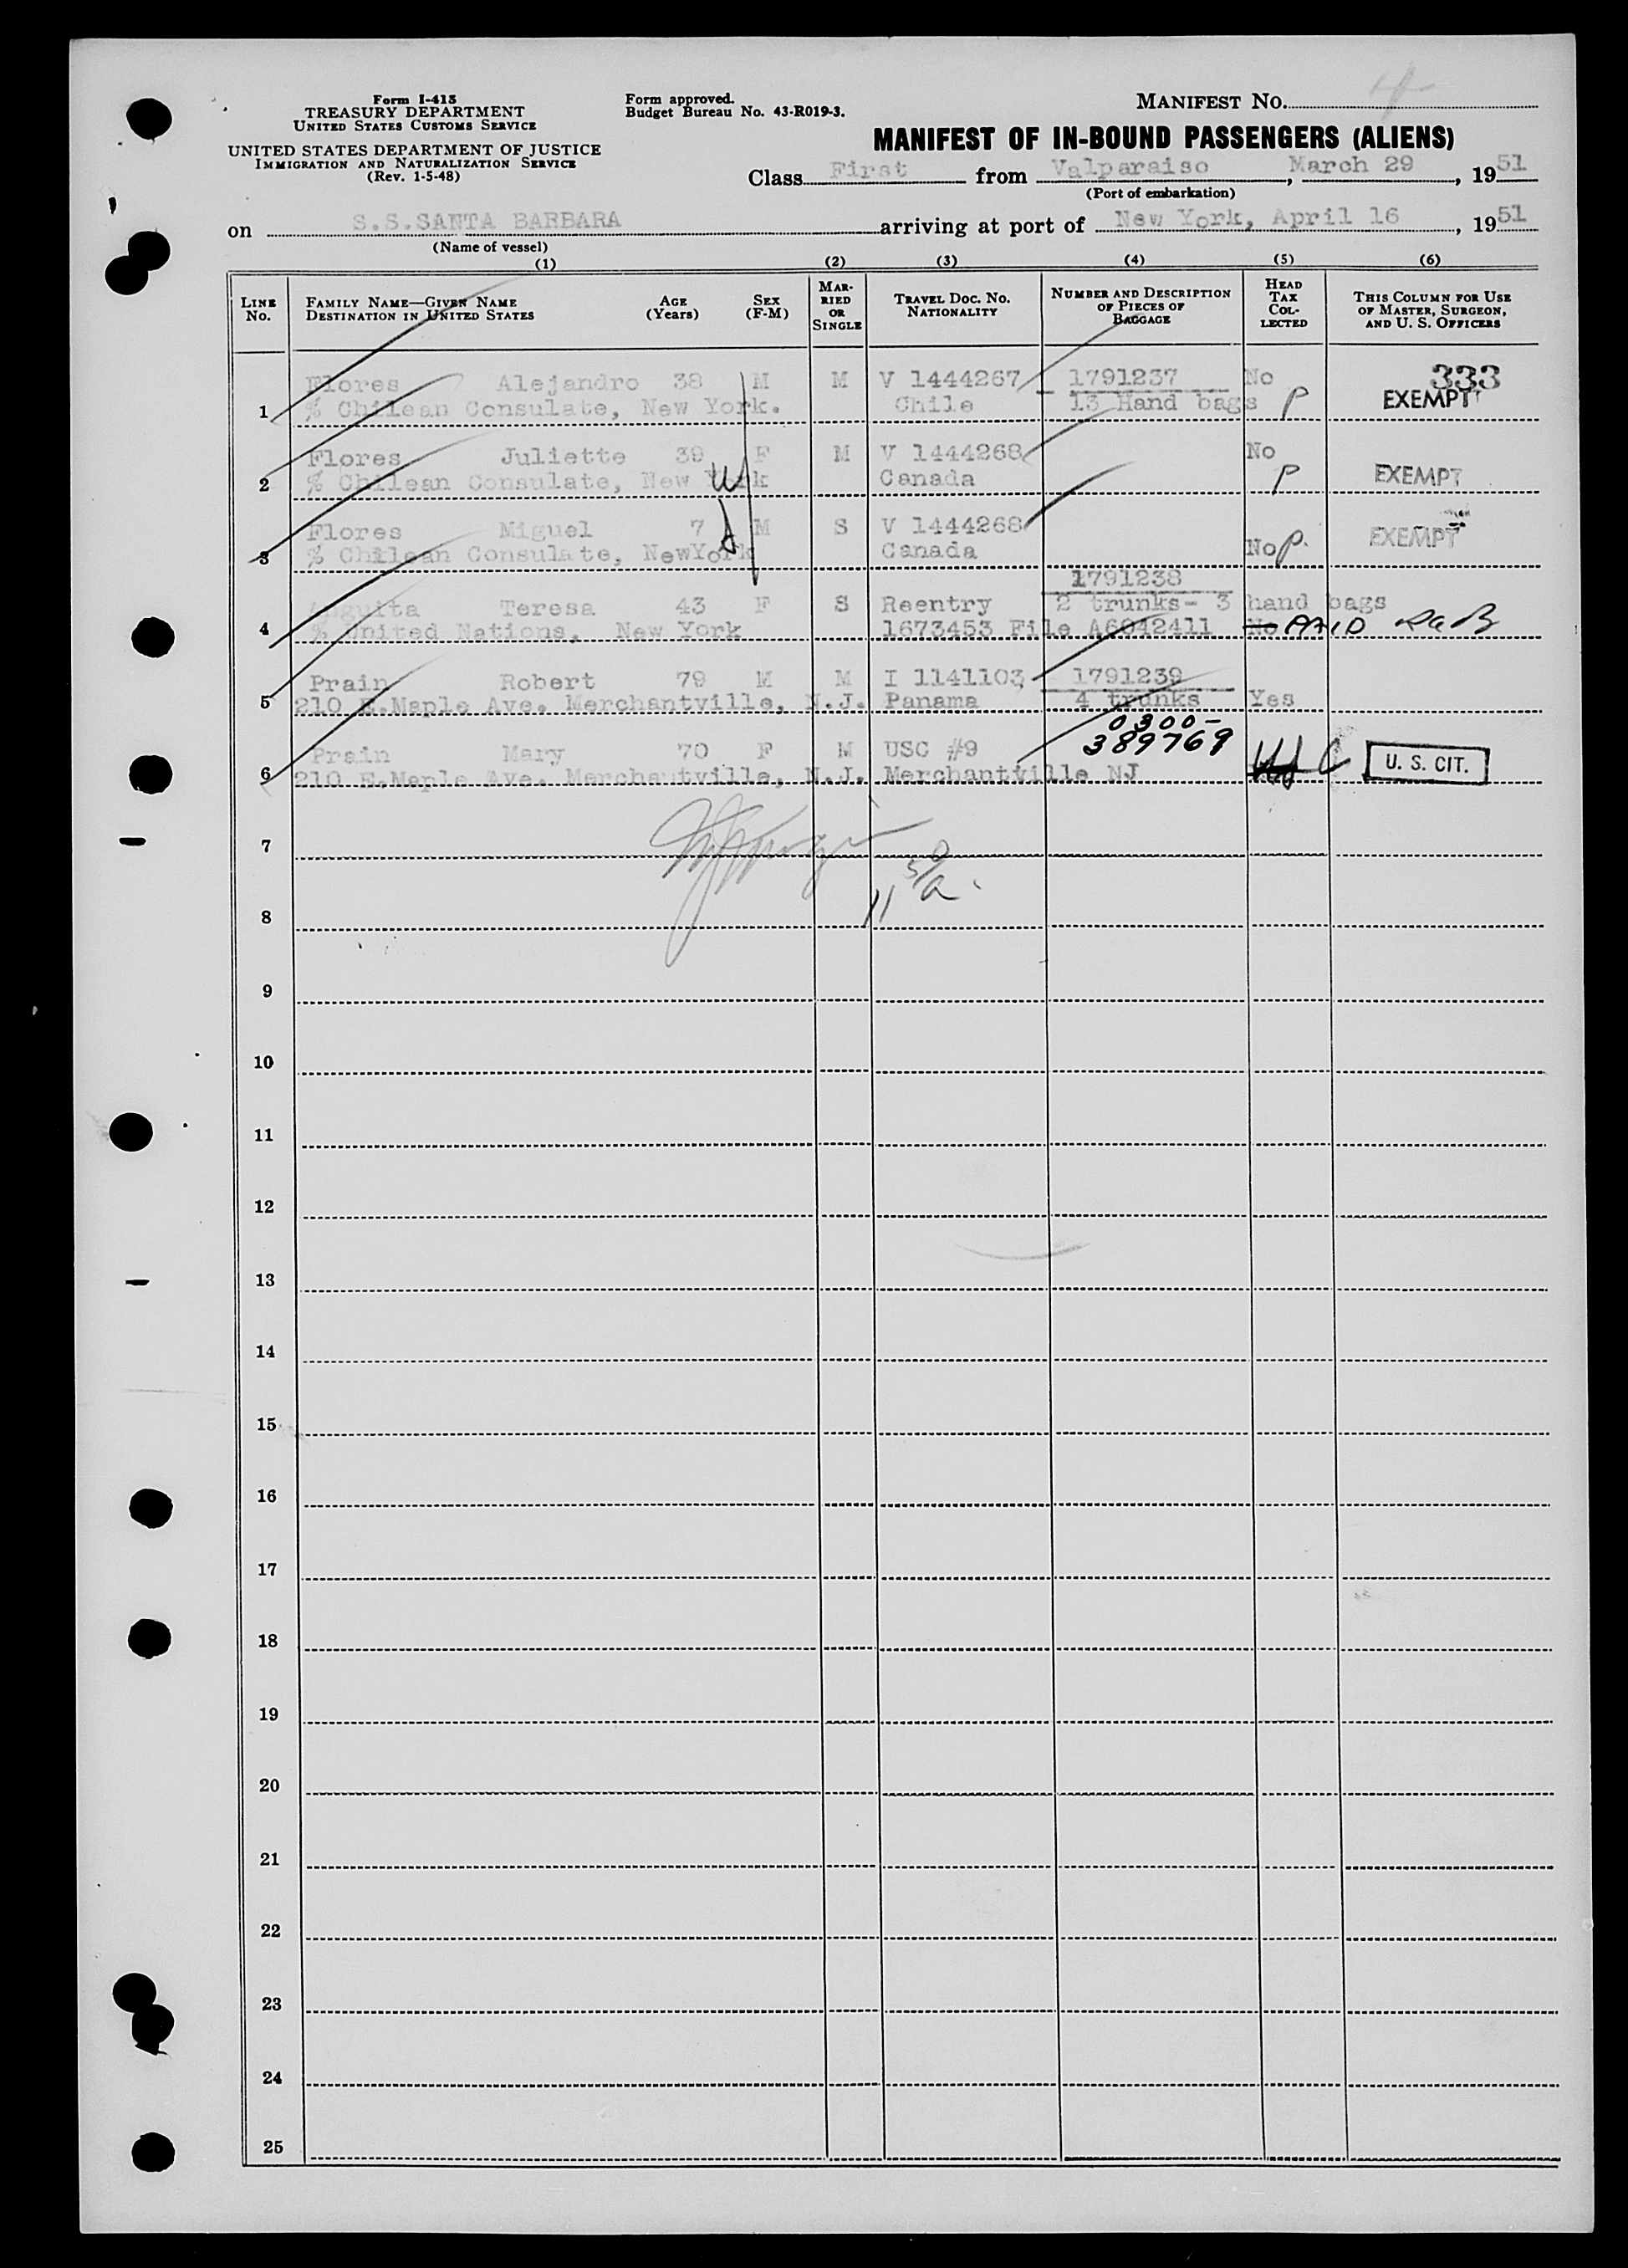 Form I-415
TREASURY DEPARTMENT
UNITED STATES CUSTOMS SERVICE
UNITED STATES DEPARTMENT OF JUSTICE
IMMIGRATION AND NATURALIZATION SERVICE
(Rev. 1-5-48)
Form approved.
Budget Bureau No. 43-R019-3.
MANIFEST NO.
MANIFEST OF IN-BOUND PASSENGERS (ALIENS)
Class First from Valparaiso, March 29, 1951
(Port of embarkation)
on S.S.SANTA BARBARA arriving at port of New York, April 16, 1951
(Name of vessel)
(1) (2) (3) (4) (5) (6)
LINE No. FAMILY NAME—GIVEN NAME DESTINATION IN UNITED STATES AGE (Years) SEX (F-M) MARRIED OR SINGLE TRAVEL DOC. NO. NATIONALITY NUMBER AND DESCRIPTION OF PIECES OF BAGGAGE HEAD TAX COLLECTED THIS COLUMN FOR USE OF MASTER, SURGEON, AND U. S. OFFICERS
Flores Alejandro 38 M M V 1444267 1791237 No 333
1 % Chilean Consulate, New York. Chile 13 Hand bags P EXEMPT
Flores Juliette 39 F M V 1444268 No
2 % Chilean Consulate, New York Canada P EXEMPT
Flores Miguel 7 M S V 1444268 EXEMPT
3 % Chilean Consulate, NewYork Canada No P.
1791238
Anguita Teresa 43 F S Reentry 2 trunks- 3 hand bags
4 % United Nations, New York 1673453 File A6042411 No PAID
Prain Robert 79 M M I 1141103 1791239
5 210 E.Maple Ave. Merchantville, N.J. Panama 4 trunks Yes
0300-
389769
Prain Mary 70 F M USC #9 U. S. CIT.
6 210 E.Maple Ave. Merchantville, N.J. Merchantville NJ
7
8
9
10
11
12
13
14
15
16
17
18
19
20
21
22
23
24
25